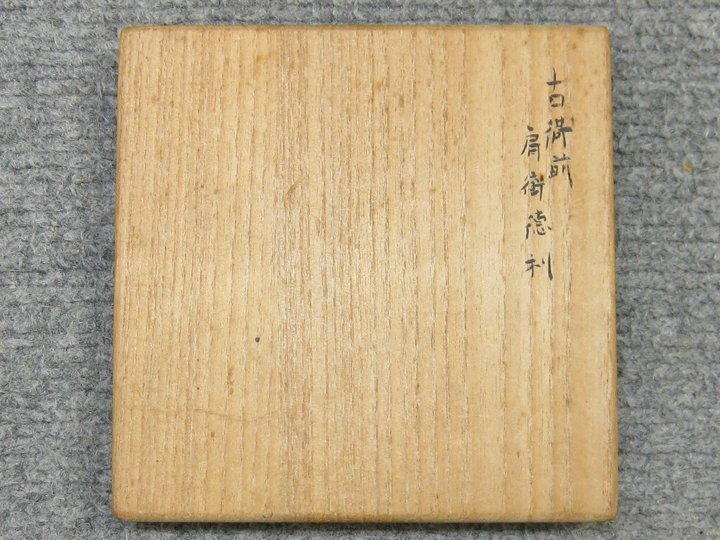 古備前
肩衝徳利